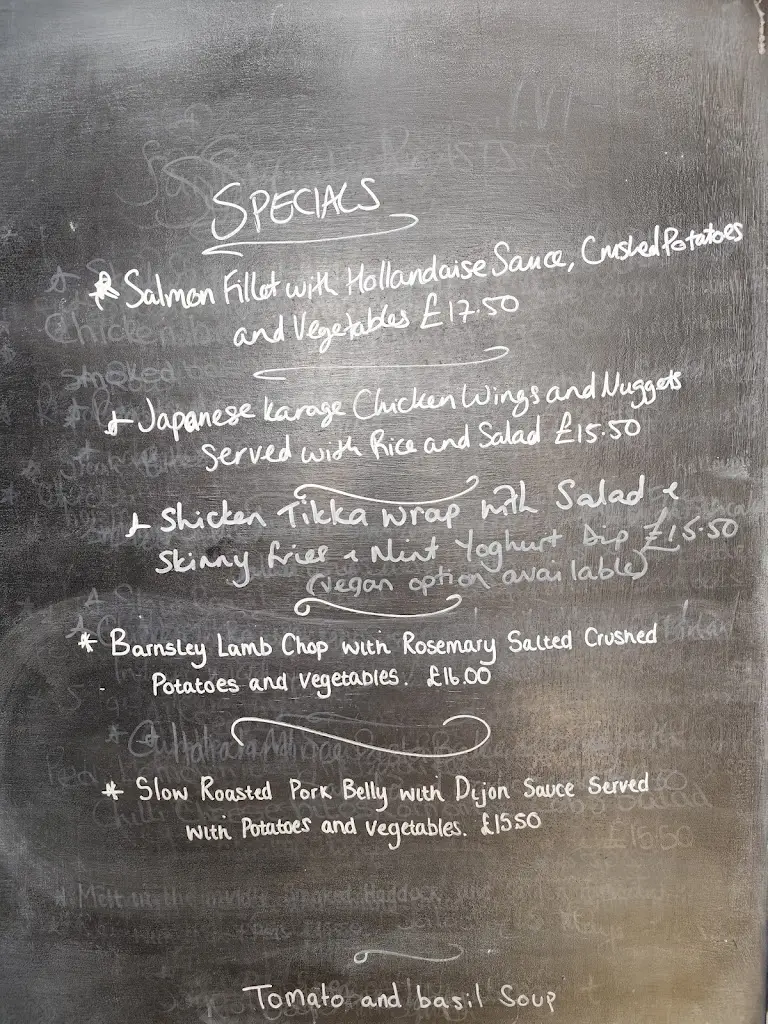 SPECIALS
* Salmon Fillet with Hollandaise Sauce, Crushed Potatoes
and Vegetables £17.50
* Japanese Karage Chicken Wings and Nuggets
Served with Rice and Salad £15.50
* Shicken Tikka Wrap with Salad &
Skinny fries & Mint Yoghurt Dip £15.50
(vegan option available)
* Barnsley Lamb Chop with Rosemary Salted Crushed
Potatoes and Vegetables. £16.00
* Slow Roasted Pork Belly with Dijon Sauce Served
with Potatoes and Vegetables. £1550
£15.50
Tomato and basil Soup